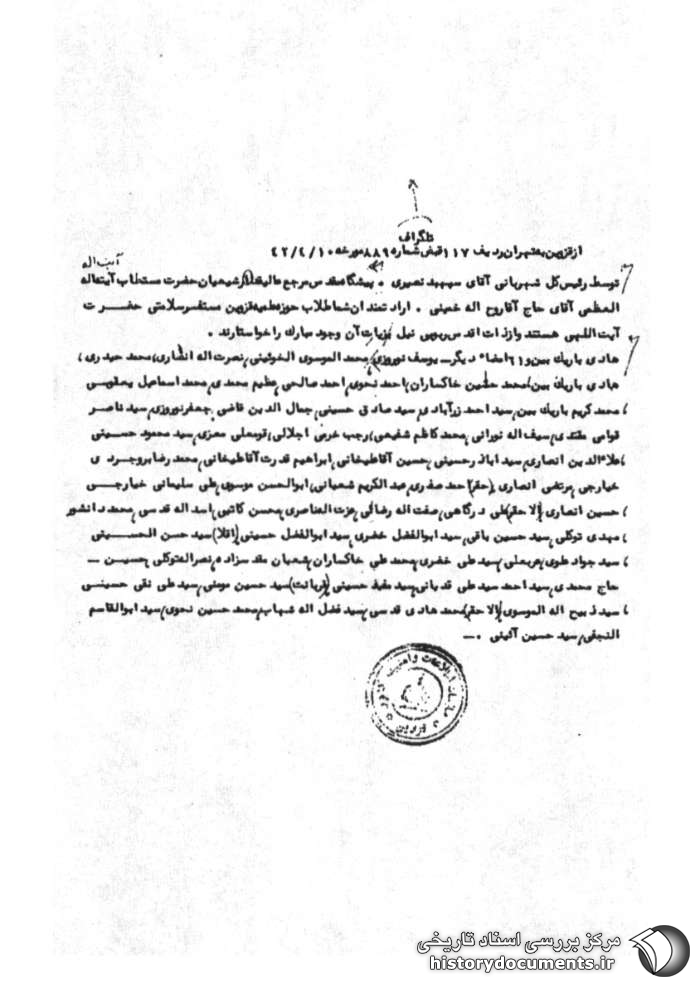 تلگراف
از قزوین به تهران ردیف ۱۱۷ قبض شماره ۸۸۹۵ مورخه ۴۲/۴/۱۰
آیت اله
توسط رئیس کل شهربانی آقای سپهبد نصیری . پیشگاه مقدس مرجع عالیقدر شیعیان حضرت مستطاب آیت‌اله
العظمی آقای حاج آقا روح اله خمینی . ارادتمندان شما طلاب حوزه علمیه قزوین مستفسر سلامتی حضرت
آیت اللهی هستند و از ذات اقدس ربوبی نیل آن وجود مبارک را خواستارند .
هادی باریک بین و ۶۱ امضاء دیگر ــ یوسف نوروزی، محمد الموسوی الخوئینی، نصرت اله انشاری، محمد حیدری،
هادی باریک بین، محمد خاکساران، احمد نحوی، احمد صالحی، عظیم محمدی، محمد اسماعیل یعقوبی
، محمد کریم باریک بین، سید احمد زرآبادی، سید صادق حسینی، جمال الدین قاضی، جعفر نوروزی، سید ناصر
قوامی، سیف اله نورانی، محمد کاظم شفیعی، رجب خرمی، اجلالی، قومعلی معزی، سید محمود حسینی
، علاءالدین انصاری، سید اباذر حسینی، حسین آقاطیخانی، ابراهیم قدرت آقاطیخانی، محمد رضا بروجردی
خیارجی، مرتضی انصاری، (حقر) احمد صفری، عبدالکریم شعبانی، ابوالحسن موسوی، علی سلیمانی خیارجی
، حسین انصاری، (الاحقر) علی درگاهی، صفت اله رضائی، عزت العناصری، محسن کاتبی، اسد اله قدسی، محمد دانشور
مهدی توکلی، سید حسین باقی، سید ابوالفضل خضری، سید ابوالفضل حسینی، (اقلا) سید حسن الحسینی
، سید جواد علوی، عربعلی، سید علی خضری، محمد علی خاکساران، شعبان مقدس زاده، نصراله توکلی، حسین ــ
حاج محمدی، سید احمد سید علی قدبانی، سید مفید حسینی، (قربانت) سید حسین مومنی، سید علی نقی حسینی
، سید ذبیح اله الموسوی، (الاحقر) محمد هادی قدسی، سید فضل اله شهاب، محمد حسین نحوی، سید ابوالقاسم
النجفی، سید حسین آئینی . ــ
مرکز بررسی اسناد تاریخی
historydocuments.ir